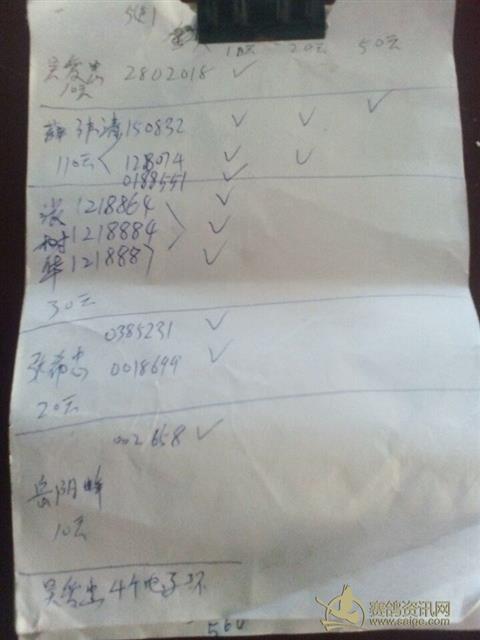 10元 20元 50元
吴爱忠 2802018 ✓
10元
薛洪涛 150832 ✓ ✓ ✓
110元 128074 ✓ ✓
0188551 ✓
张 1218864 ✓
树 1218884 ✓
华 1218887 ✓
30元
0385231 ✓
张希忠 0018699 ✓
20元
002658 ✓
岳阴峰
10元
吴爱忠 4个电子环
560
赛鸽资讯网
www.saige.com